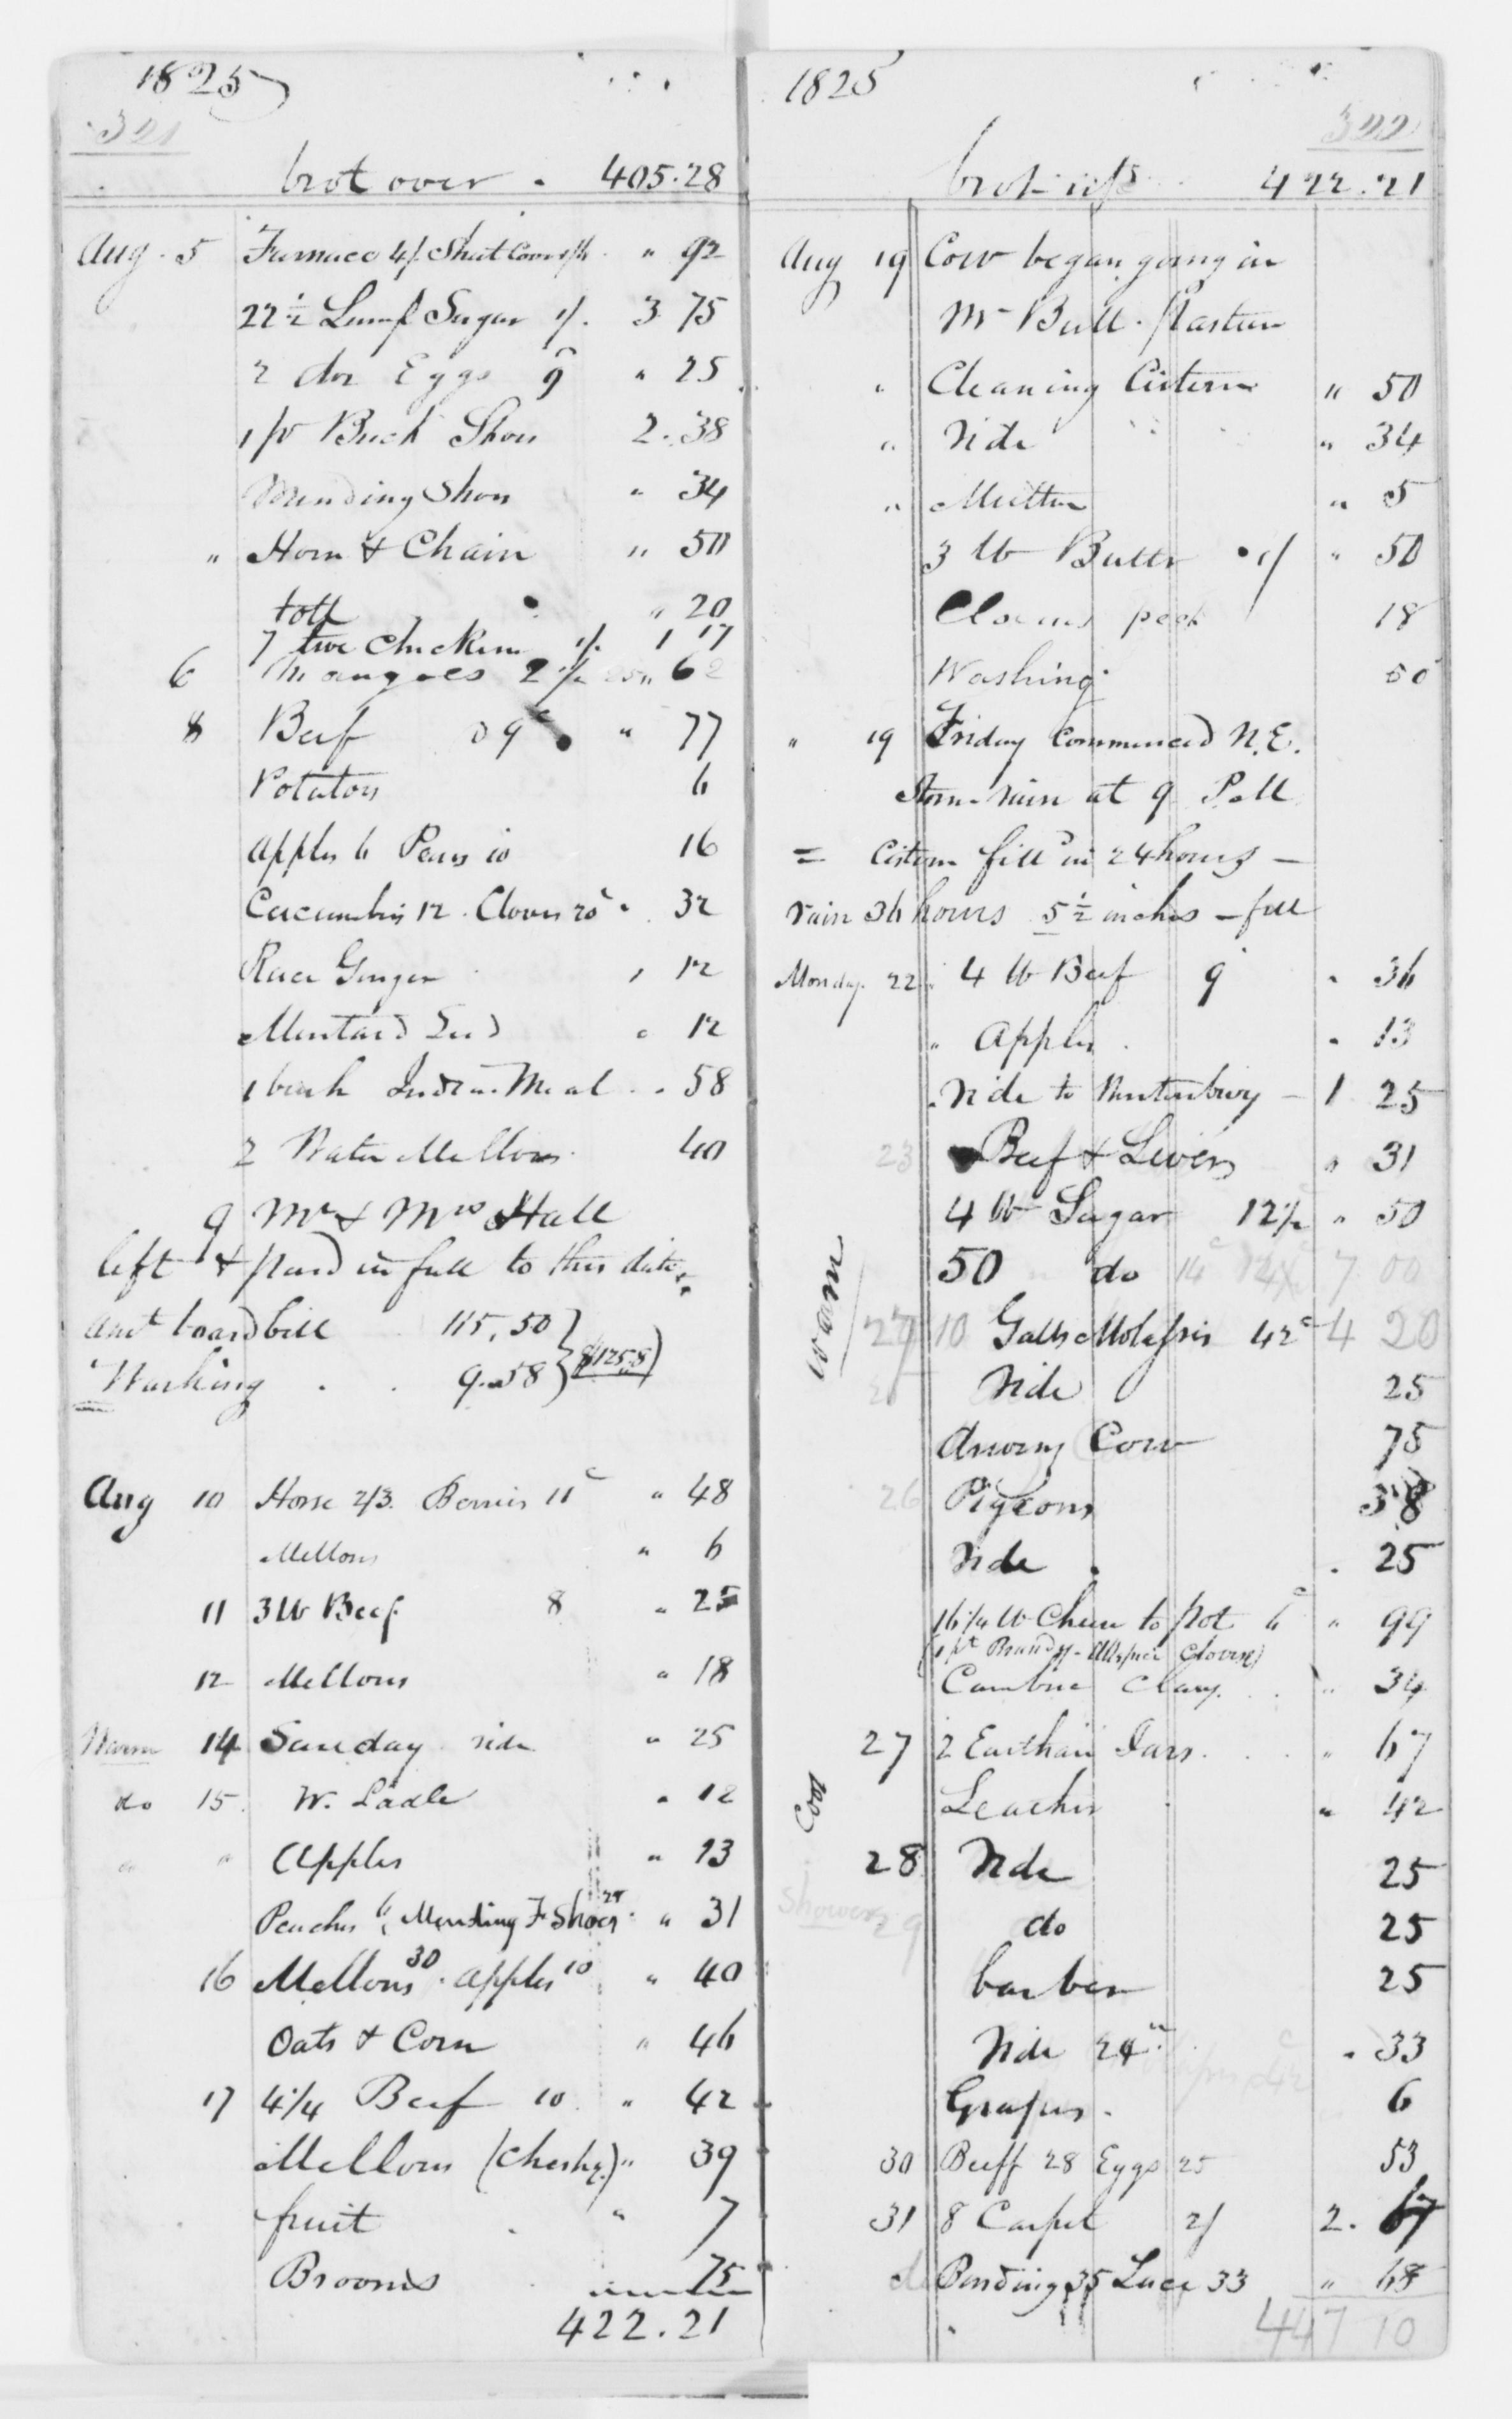 1825
321
brot over . 405.28
Aug. 5 Furnace 4/. Sheet Cover 1/6 " 92
22 1/2 Lump Sugar 1/. 3 75
2 doz Eggs 9 " 25
1 pr Buck Shoes 2.38
Mending Shoes " 34
" Horn & Chain " 50
toll " 20
7 live Chickens 1/. 1 17
6 Mangoes 2 1/2 25 " 62
8 Beef 9c " 77
Potatoes 6
Apples 6 Pears 10 16
Cucumbers 12. Cloves 20c " 32
Race Ginger 12
Mustard Seed " 12
1 bush Indian Meal . . 58
2 Water Mellons 40
9 Mr & Mrs Hall
left & paid in full to this date
amt board bill 115,50
Washing . . 9.58 } $125.8
Aug 10 Horse 2/3. Berries 11c " 48
Mellons " 6
11 3 lb Beef 8 " 25
12 Mellons " 18
Warm 14 Sunday ride " 25
do 15. W. Ladle " 12
" " Apples " 13
Peaches 6, Mending F Shoes 25 " 31
16 Mellons 30. apples 10 " 40
Oats & Corn " 46
17 4 1/4 Beef 10 " 42
Mellons (Chesh.) " 39
fruit " 7
Brooms 75
422.21
1825
322
brot up 422.21
Aug 19 Cow began going in
Mr Bull. Pasture
" Cleaning Cistern " 50
" Ride " 34
" Mutton " 5
3 lb Butter 1/ " 50
peck 18
Washing 50
" 19 Friday Commenced N.E.
Storm rain at 9 P.M
= Cistern filld in 24 hours -
rain 36 hours 5 1/2 inches - fell
Monday. 22 4 lb Beef 9 " 36
" Apples . " 13
" Ride to - 1 25
23 Beef & Livers " 31
4 lb Sugar 12 1/2 " 50
50 do 14c 7 00
warm 27 10 Galls Molasses 42c 4 20
Ride 25
driving Cow 75
26 Pigeons 38
Ride . . 25
16 1/4 lb Cheese to pot 6c " 99
(1 pt Brandy - Allspice Cloves)
Cambric . . " 34
27 2 Earthern Jars . . " 67
Leather " 42
Cool
28 Ride 25
Showers 29 do 25
barber 25
Ride 24 " 33
Grapes . 6
30 Beeff 28 Eggs 25 53
31 8 Carpet 2/ 2. 67
do Binding 35 Lace 33 " 68
447 10